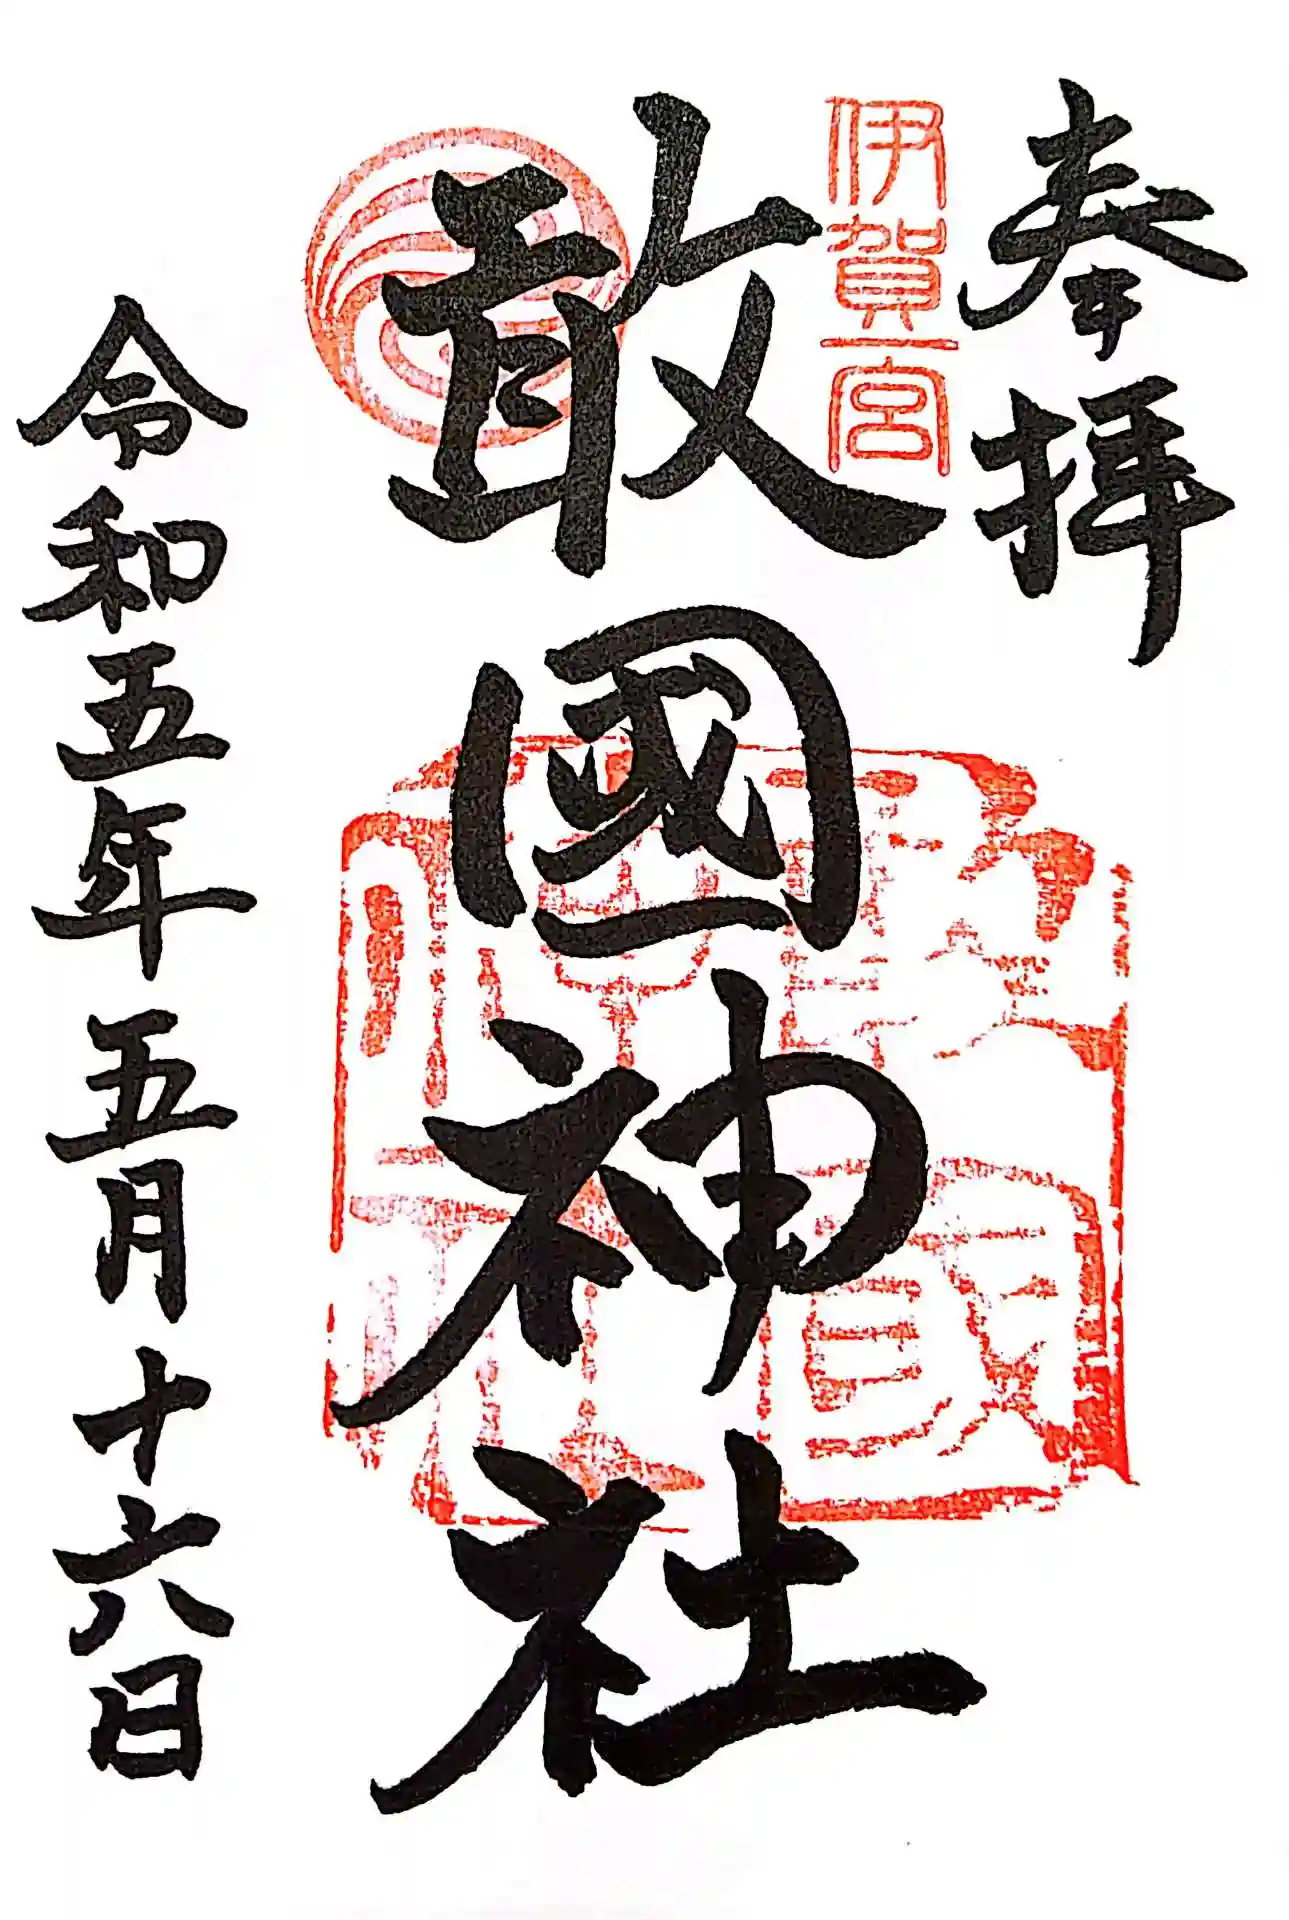 奉拝
伊賀一宮
敢國神社
敢國神社
令和五年五月十六日